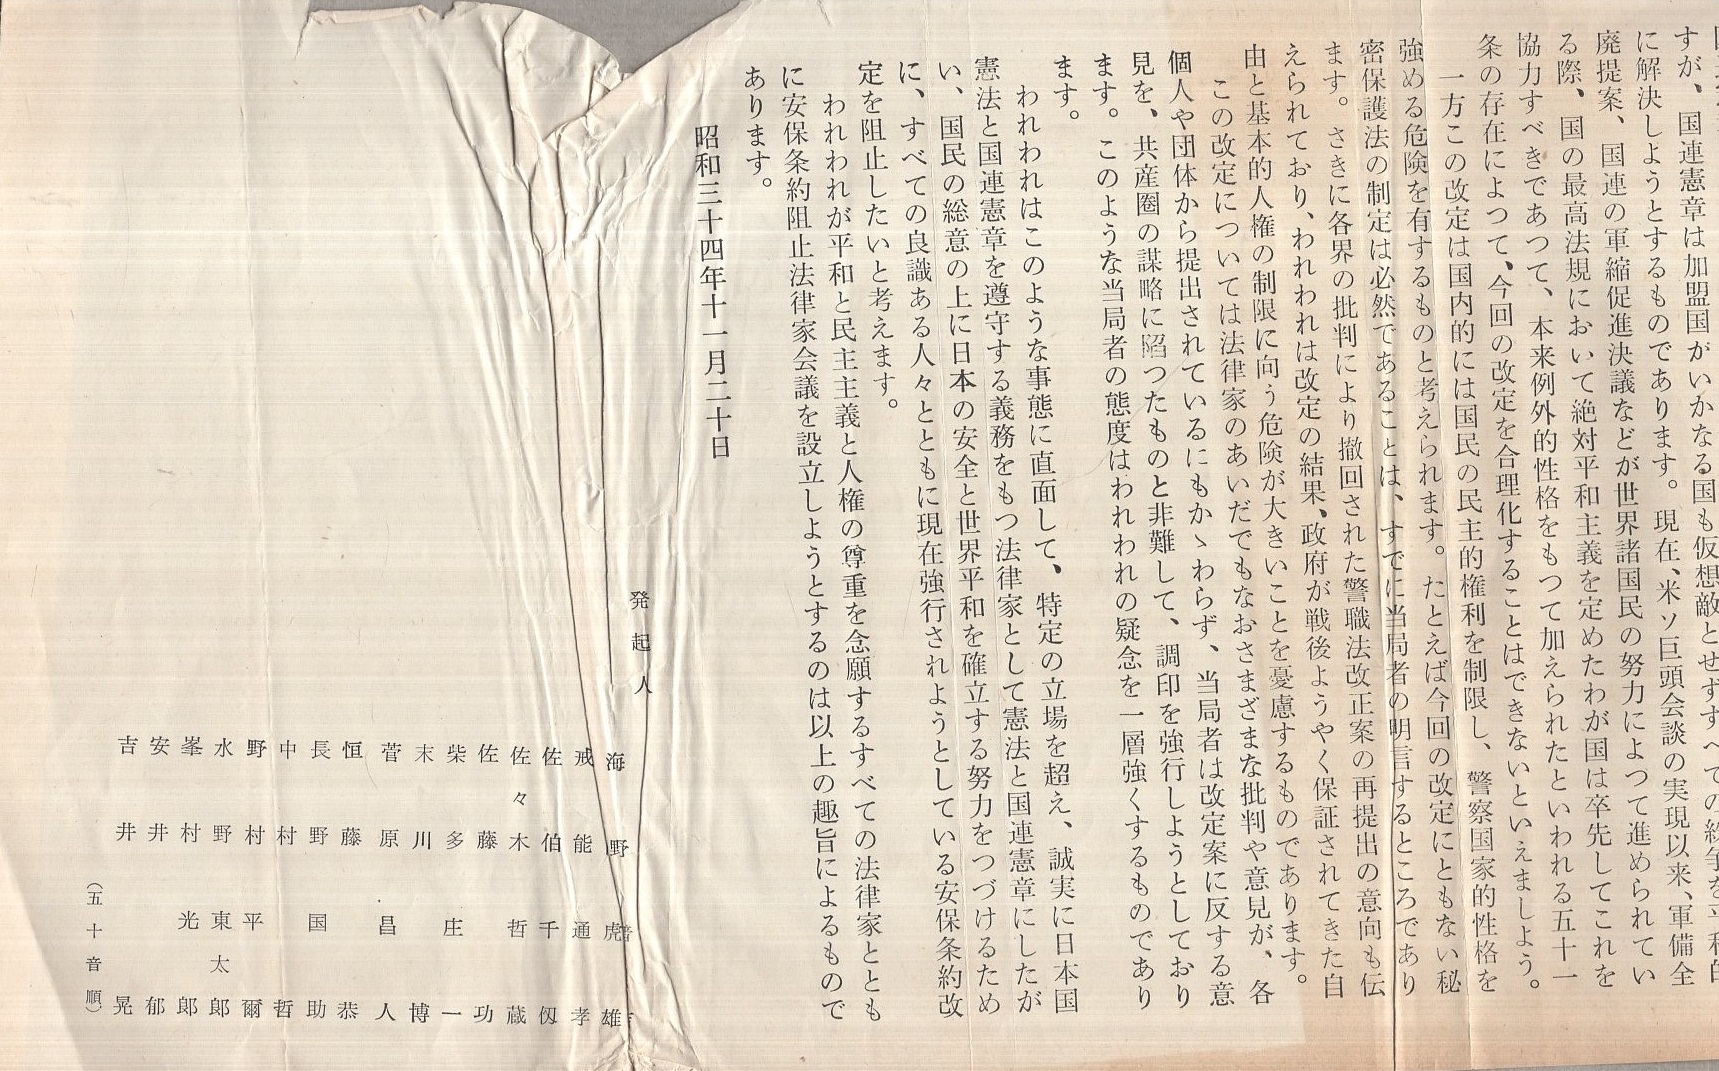 すが、国連憲章は加盟国がいかなる国も仮想敵とせずすべての紛争を平和的
に解決しようとするものであります。現在、米ソ巨頭会談の実現以来、軍備全
廃提案、国連の軍縮促進決議などが世界諸国民の努力によつて進められてい
る際、国の最高法規において絶対平和主義を定めたわが国は卒先してこれを
協力すべきであつて、本来例外的性格をもつて加えられたといわれる五十一
条の存在によつて、今回の改定を合理化することはできないといえましよう。
一方この改定は国内的には国民の民主的権利を制限し、警察国家的性格を
強める危険を有するものと考えられます。たとえば今回の改定にともない秘
密保護法の制定は必然であることは、すでに当局者の明言するところであり
ます。さきに各界の批判により撤回された警職法改正案の再提出の意向も伝
えられており、われわれは改定の結果、政府が戦後ようやく保証されてきた自
由と基本的人権の制限に向う危険が大きいことを憂慮するものであります。
この改定については法律家のあいだでもなおさまざまな批判や意見が、各
個人や団体から提出されているにもかゝわらず、当局者は改定案に反する意
見を、共産圏の謀略に陥つたものと非難して、調印を強行しようとしており
ます。このような当局者の態度はわれわれの疑念を一層強くするものであり
ます。
われわれはこのような事態に直面して、特定の立場を超え、誠実に日本国
憲法と国連憲章を遵守する義務をもつ法律家として憲法と国連憲章にしたが
い、国民の総意の上に日本の安全と世界平和を確立する努力をつづけるため
に、すべての良識ある人々とともに現在強行されようとしている安保条約改
定を阻止したいと考えます。
われわれが平和と民主主義と人権の尊重を念願するすべての法律家ととも
に安保条約阻止法律家会議を設立しようとするのは以上の趣旨によるもので
あります。
昭和三十四年十一月二十日
発起人
海野
戒能通孝
佐伯千仭
佐々木哲蔵
佐藤功
柴多庄一
末川博
菅原昌人
恒藤恭
長野国助
中村哲
野村平爾
水野東太郎
峯村光郎
安井郁
吉井晃
（五十音順）